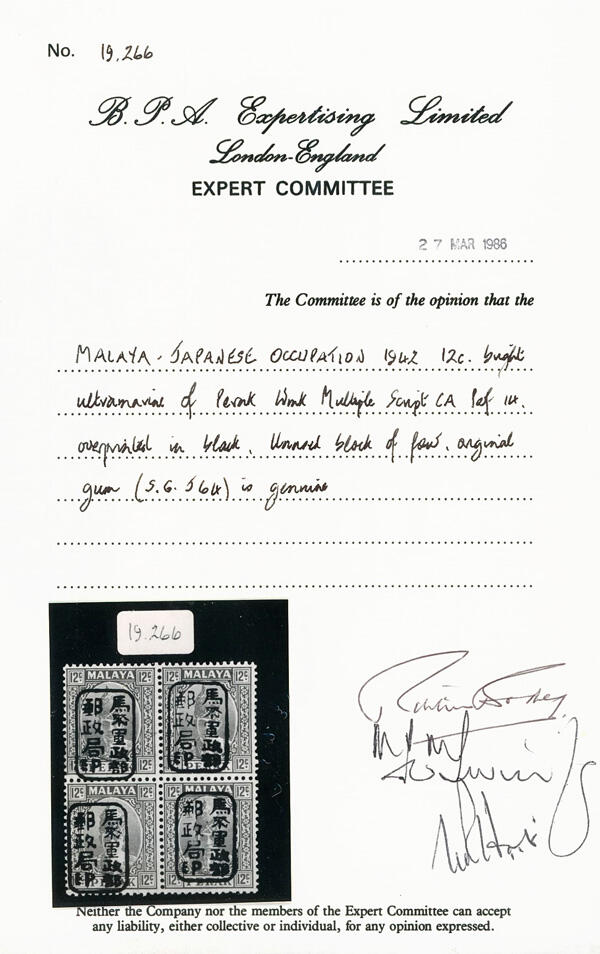 No. 19,266
B.P.A. Expertising Limited
London-England
EXPERT COMMITTEE
27 MAR 1986
The Committee is of the opinion that the
MALAYA - JAPANESE OCCUPATION 1942 12c. bright
ultramarine of Perak Wmk Multiple Script CA Perf 14.
overprinted in black. Unused block of four, original
gum (S.G. J64) is genuine
19.266
12c MALAYA 12c
12c MALAYA 12c
馬來軍政部
郵政局
馬來軍政部
郵政局
MALAYA
MALAYA
馬來軍政部
郵政局
12c
馬來軍政部
郵政局
12c
PERAK
Neither the Company nor the members of the Expert Committee can accept
any liability, either collective or individual, for any opinion expressed.